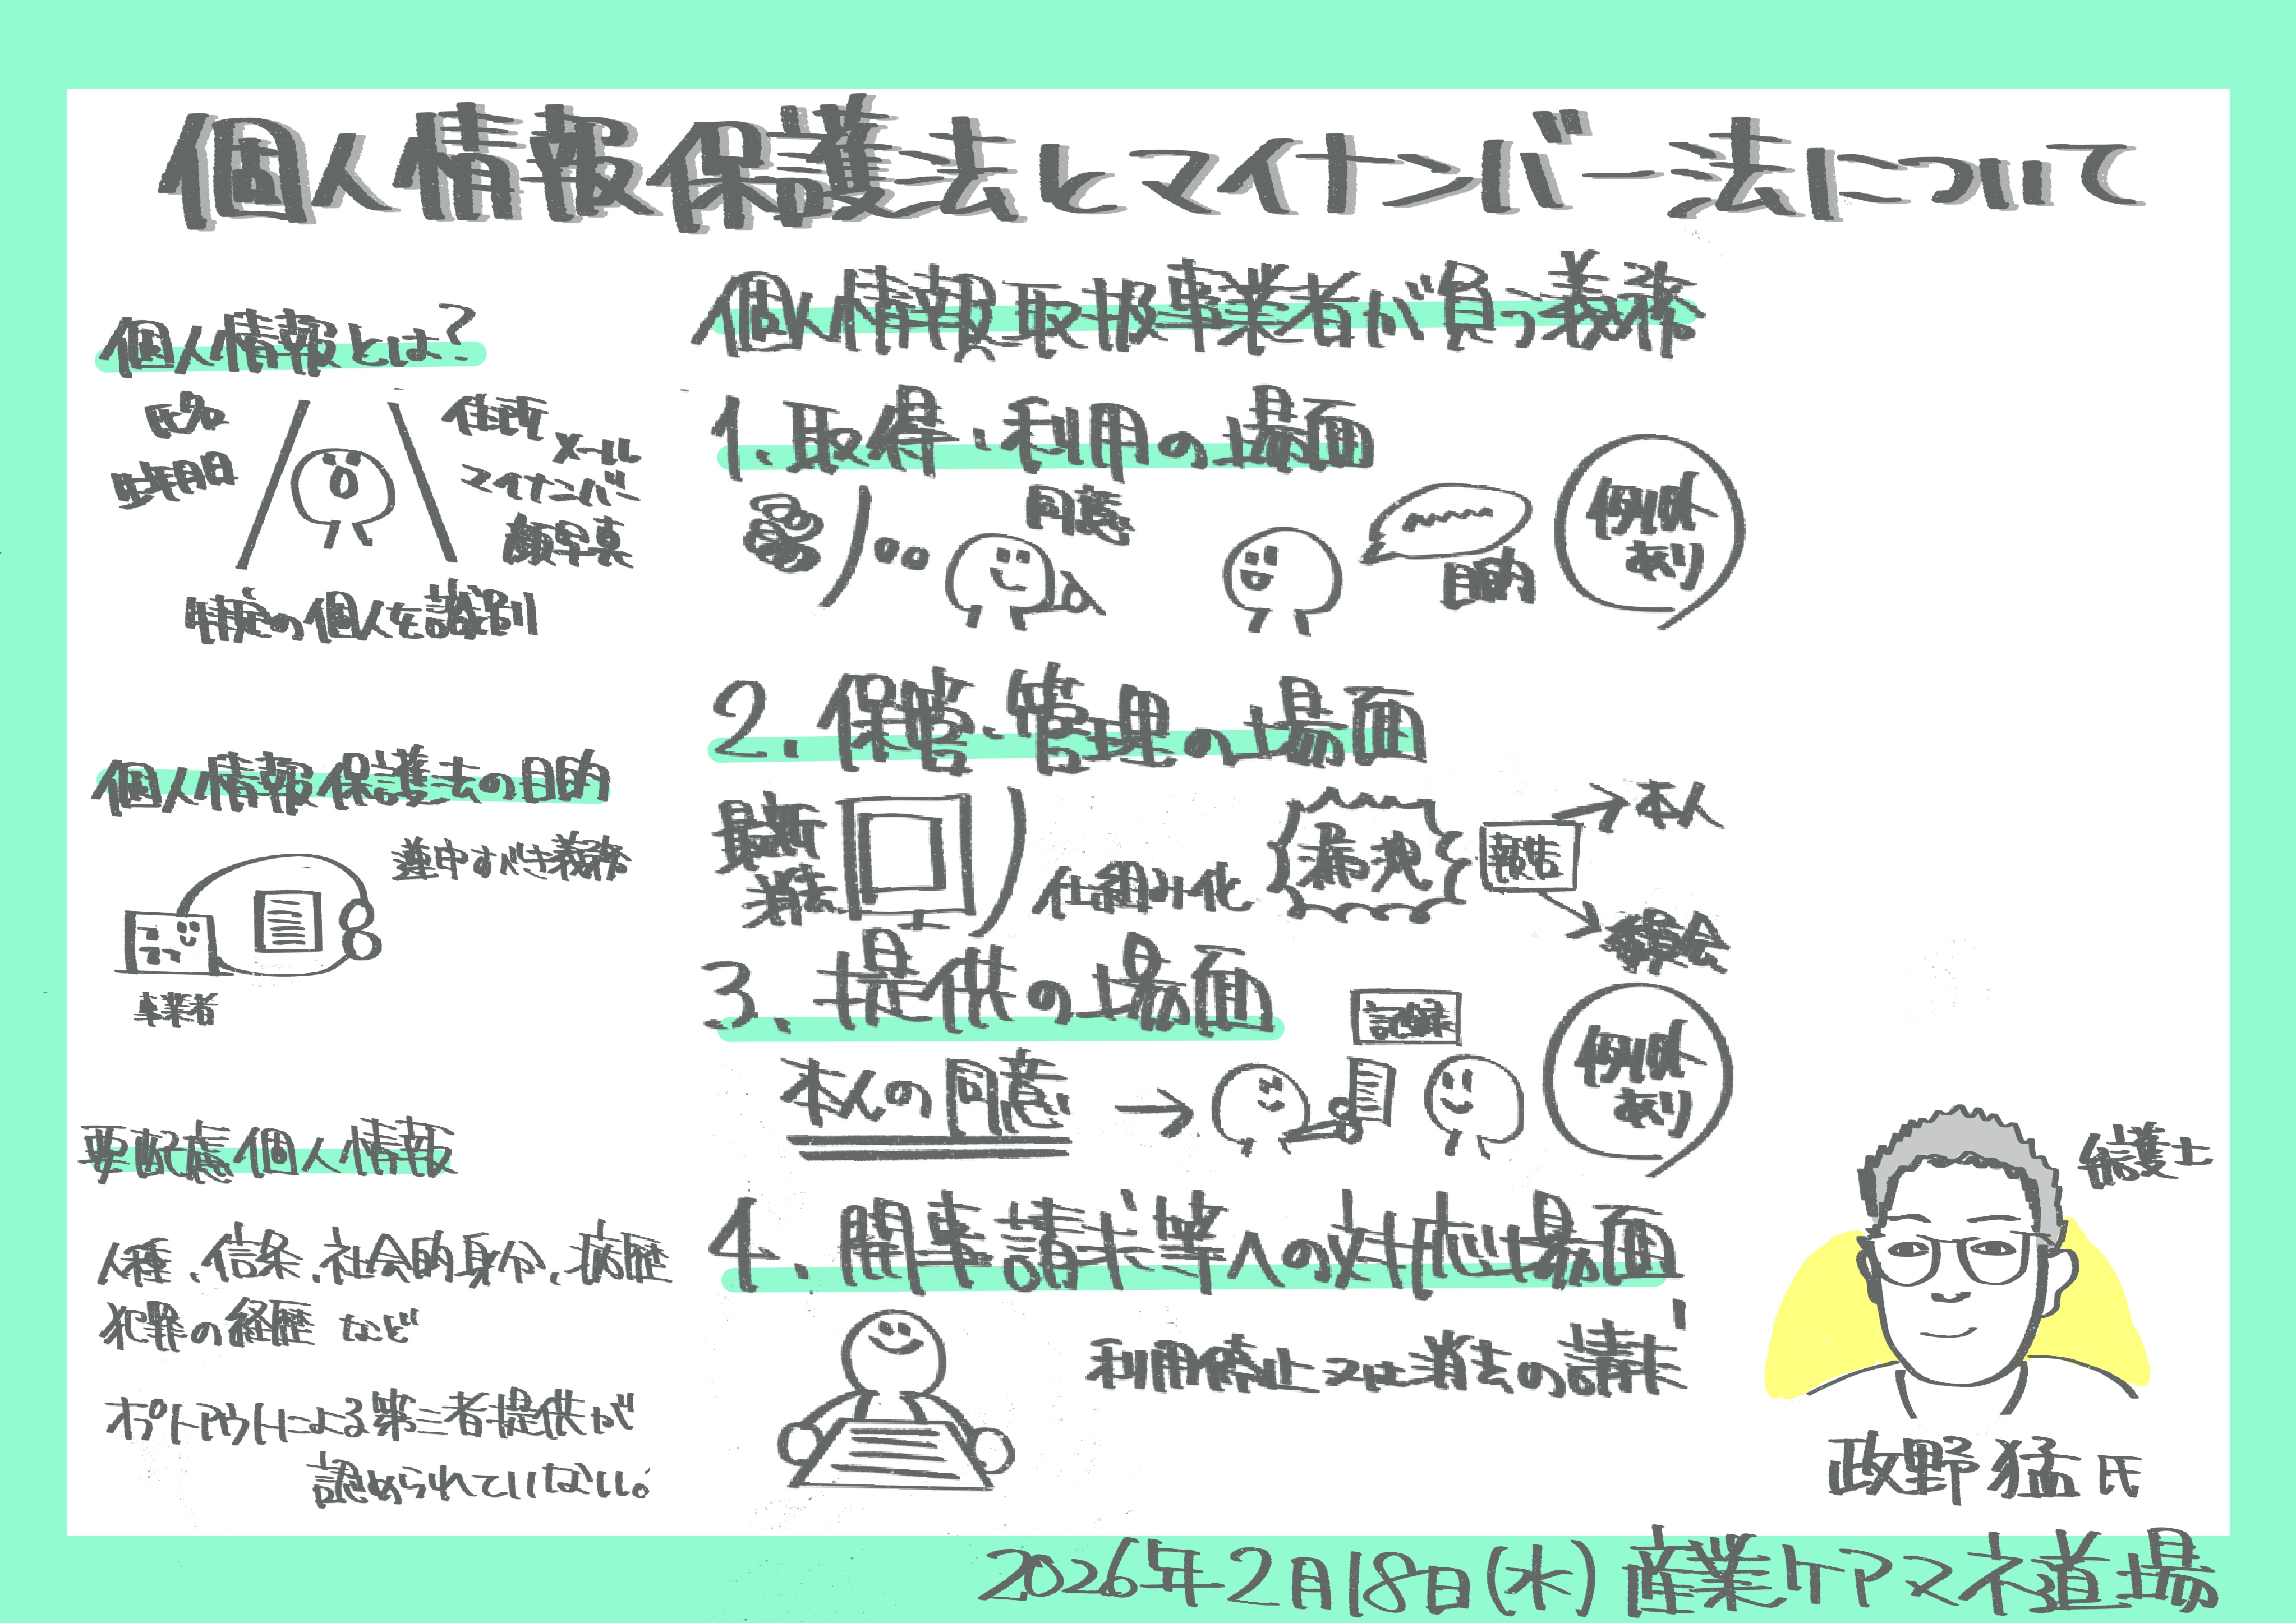 個人情報保護法とマイナンバー法について
個人情報とは?
氏名
生年月日
住所
メール
マイナンバー
顔写真
特定の個人を識別
個人情報保護法の目的
遵守すべき義務
事業者
要配慮個人情報
人種、信条、社会的身分、病歴
犯罪の経歴 など
オプトアウトによる第三者提供が
認められていない。
個人情報取扱事業者が負う義務
1. 取得・利用の場面
同意
目的
例外
あり
2. 保管・管理の場面
最新
消去
仕組み化
漏洩
報告
本人
委員会
3. 提供の場面
記録
本人の同意
例外
あり
4. 開事請求等への対応場面
利用停止又は消去の請求
弁護士
政野 猛 氏
2026年2月18日(水) 産業ケアマネ道場